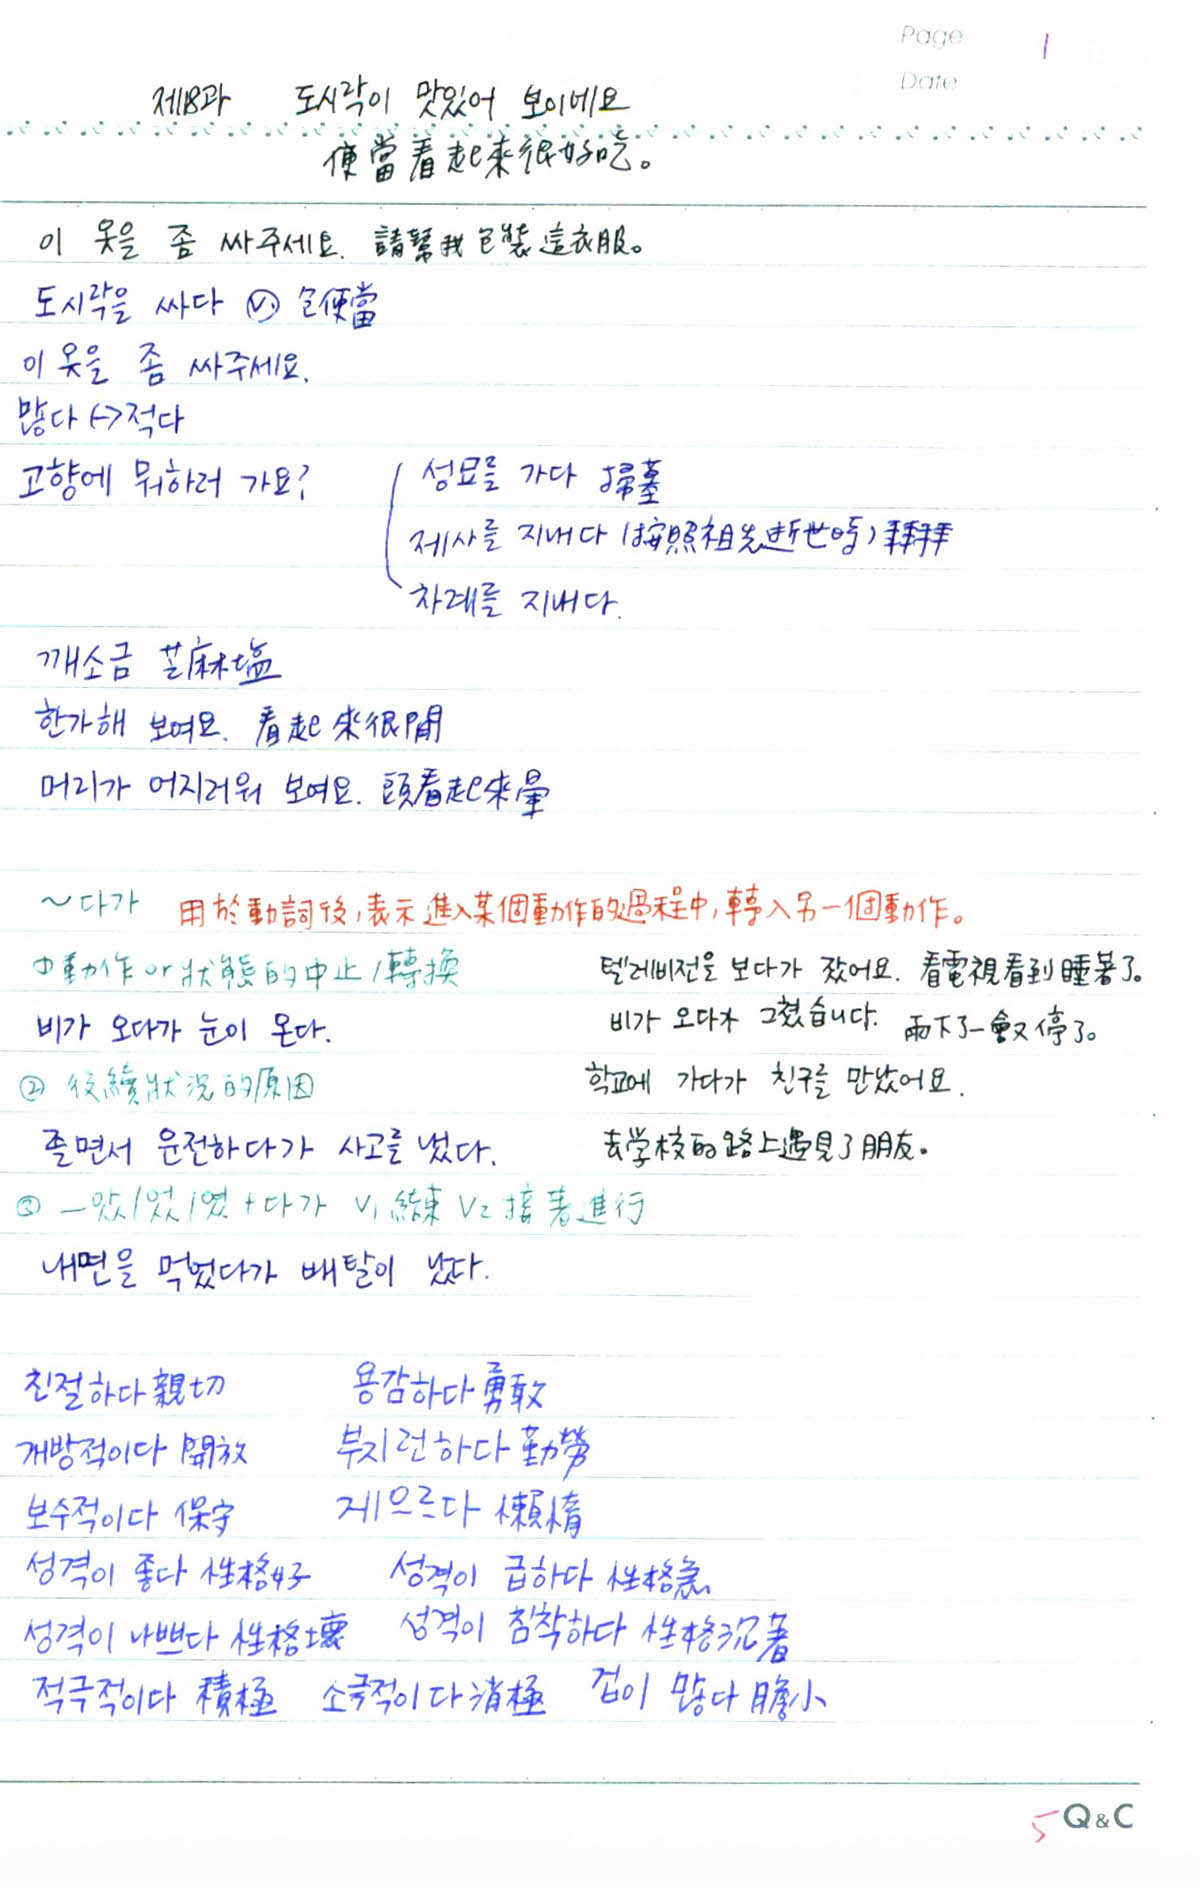 Page 1
Date
제18과 도시락이 맛있어 보이네요
便當看起來很好吃。
이 옷을 좀 싸주세요. 請幫我包裝這衣服。
도시락을 싸다 Ⓥ 包便當
이 옷을 좀 싸주세요.
많다 <-> 적다
고향에 뭐하러 가요?
성묘를 가다 掃墓
제사를 지내다 (按照祖先逝世時) 拜拜
차례를 지내다.
깨소금 芝麻塩
한가해 보여요. 看起來很閒
머리가 어지러워 보여요. 頭看起來暈
~다가 用於動詞後,表示進入某個動作的過程中,轉入另一個動作。
①動作or狀態的中止/轉換
텔레비전을 보다가 잤어요. 看電視看到睡著了。
비가 오다가 눈이 온다.
비가 오다가 그쳤습니다. 雨下了一會又停了。
② 後續狀況的原因
학교에 가다가 친구를 만났어요.
졸면서 운전하다가 사고를 냈다.
去学校的路上遇見了朋友。
③ –았/었/였+다가 V₁結束 V₂接著進行
내면을 먹었다가 배탈이 났다.
친절하다 親切 용감하다 勇敢
개방적이다 開放 부지런하다 勤勞
보수적이다 保守 게으르다 懶惰
성격이 좋다 性格好 성격이 급하다 性格急
성격이 나쁘다 性格壞 성격이 침착하다 性格沉著
적극적이다 積極 소극적이다 消極 겁이 많다 膽小
5 Q&C